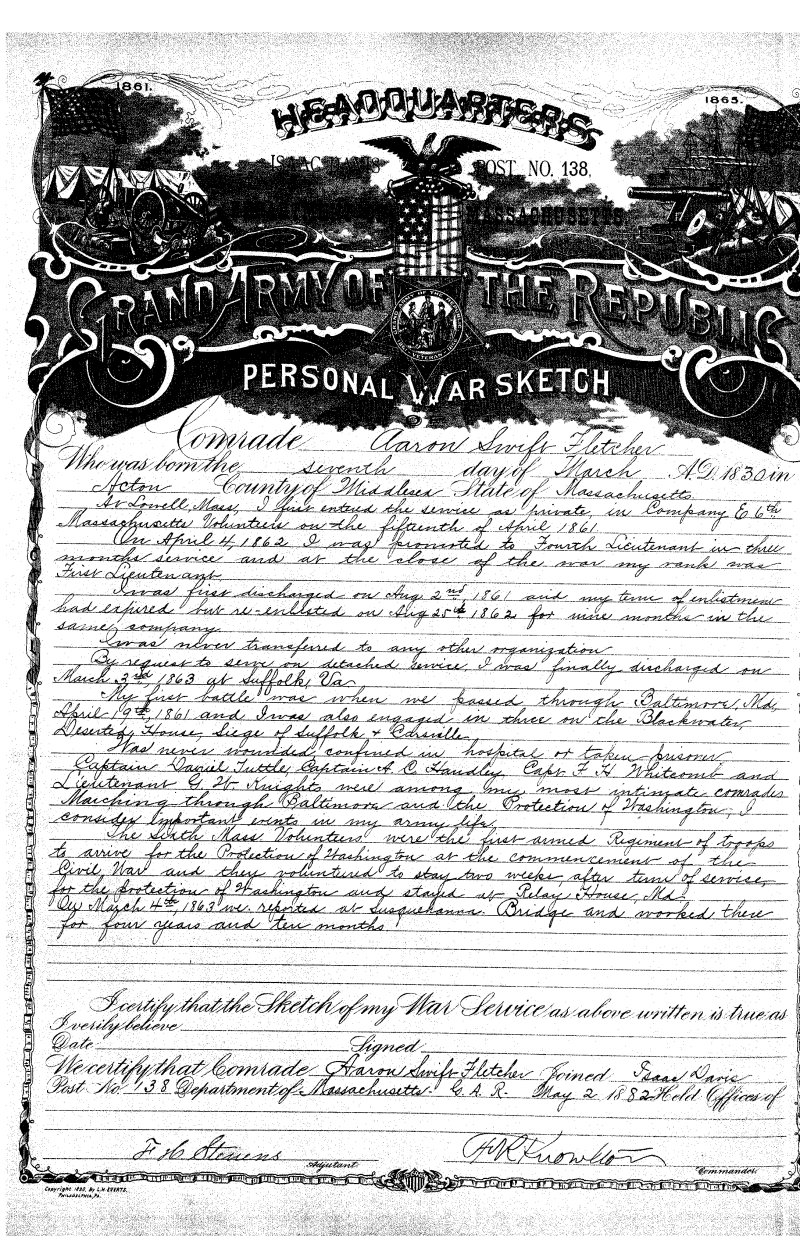 1861.
1865.
HEADQUARTERS
ISAAC DAVIS POST NO. 138,
MASSACHUSETTS
GRAND ARMY OF THE REPUBLIC
VETERANS
PERSONAL WAR SKETCH
Comrade Aaron Swift Fletcher
Who was born the seventh day of March A.D. 1830 in
Acton County of Middlesex State of Massachusetts
At Lowell, Mass, I first entred the service as private, in Company E 6th,
Massachusetts Volunteers on the fifteenth of April 1861
On April 4, 1862 I was promoted to Fourth Lieutenant in three
months service and at the close of the war my rank was
First Lieutenant.
I was first discharged on Aug 2nd, 1861 and my term of enlistment
had expired but re-enlisted on Aug 25th 1862 for nine months in the
same company.
I was never transferred to any other organization
By request to serve on detached service, I was finally discharged on
March 3rd 1863 at Suffolk, Va
My first battle was when we passed through Baltimore, Md,
April 19th, 1861 and I was also engaged in three on the Blackwater,
Deserted House, Siege of Suffolk + Carsville.
Was never wounded, confined in hospital or taken prisoner
Captain Daniel Tuttle, Captain A. C. Handley, Capt F. H. Whitcomb and
Lieutenant G. W. Knights were among my most intimate comrades
Marching through Baltimore and the Protection of Washington, I
consider Important events in my army life.
The Sixth Mass Volunteers were the first armed Regiment of troops
to arrive for the Protection of Washington at the commencement of the
Civil War and they volunteered to stay two weeks after term of service,
for the protection of Washington and stayed at Relay House, Md-
On March 4th, 1863 we reported at Susquehanna Bridge and worked there
for four years and ten months
I certify that the Sketch of my War Service as above written is true as
I verily believe
Date Signed
We certify that Comrade Aaron Swift Fletcher Joined Isaac Davis
Post No. 138 Department of Massachusetts. G. A. R. May 2 1882 Held Offices of
F. H. Stevens
Adjutant
Knowlton
Commander.
Copyright 1890, By L.H. EVERTS.
PHILADELPHIA, PA.